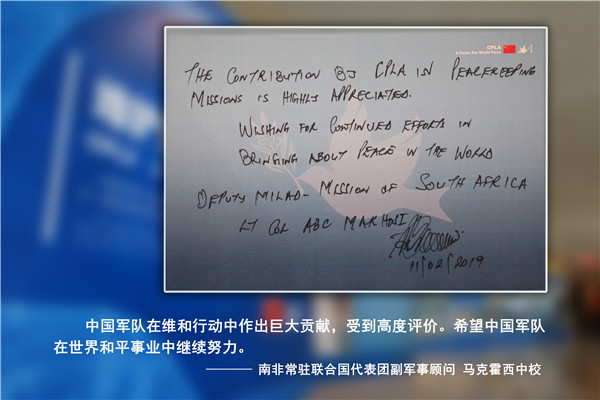 CPLA
A Force For World Peace
THE CONTRIBUTION BY CPLA IN PEACEKEEPING
MISSIONS IS HIGHLY APPRECIATED.
WISHING FOR CONTINUED EFFORTS IN
BRINGING ABOUT PEACE IN THE WORLD
DEPUTY MILAD- MISSION OF SOUTH AFRICA
LT COL ABC MAKHOSI
11/02/2019
中国军队在维和行动中作出巨大贡献，受到高度评价。希望中国军队
在世界和平事业中继续努力。
——— 南非常驻联合国代表团副军事顾问 马克霍西中校